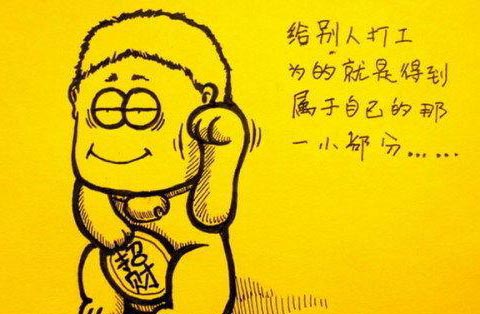 给别人打工
为的就是得到
属于自己的那
一小部分......
招财